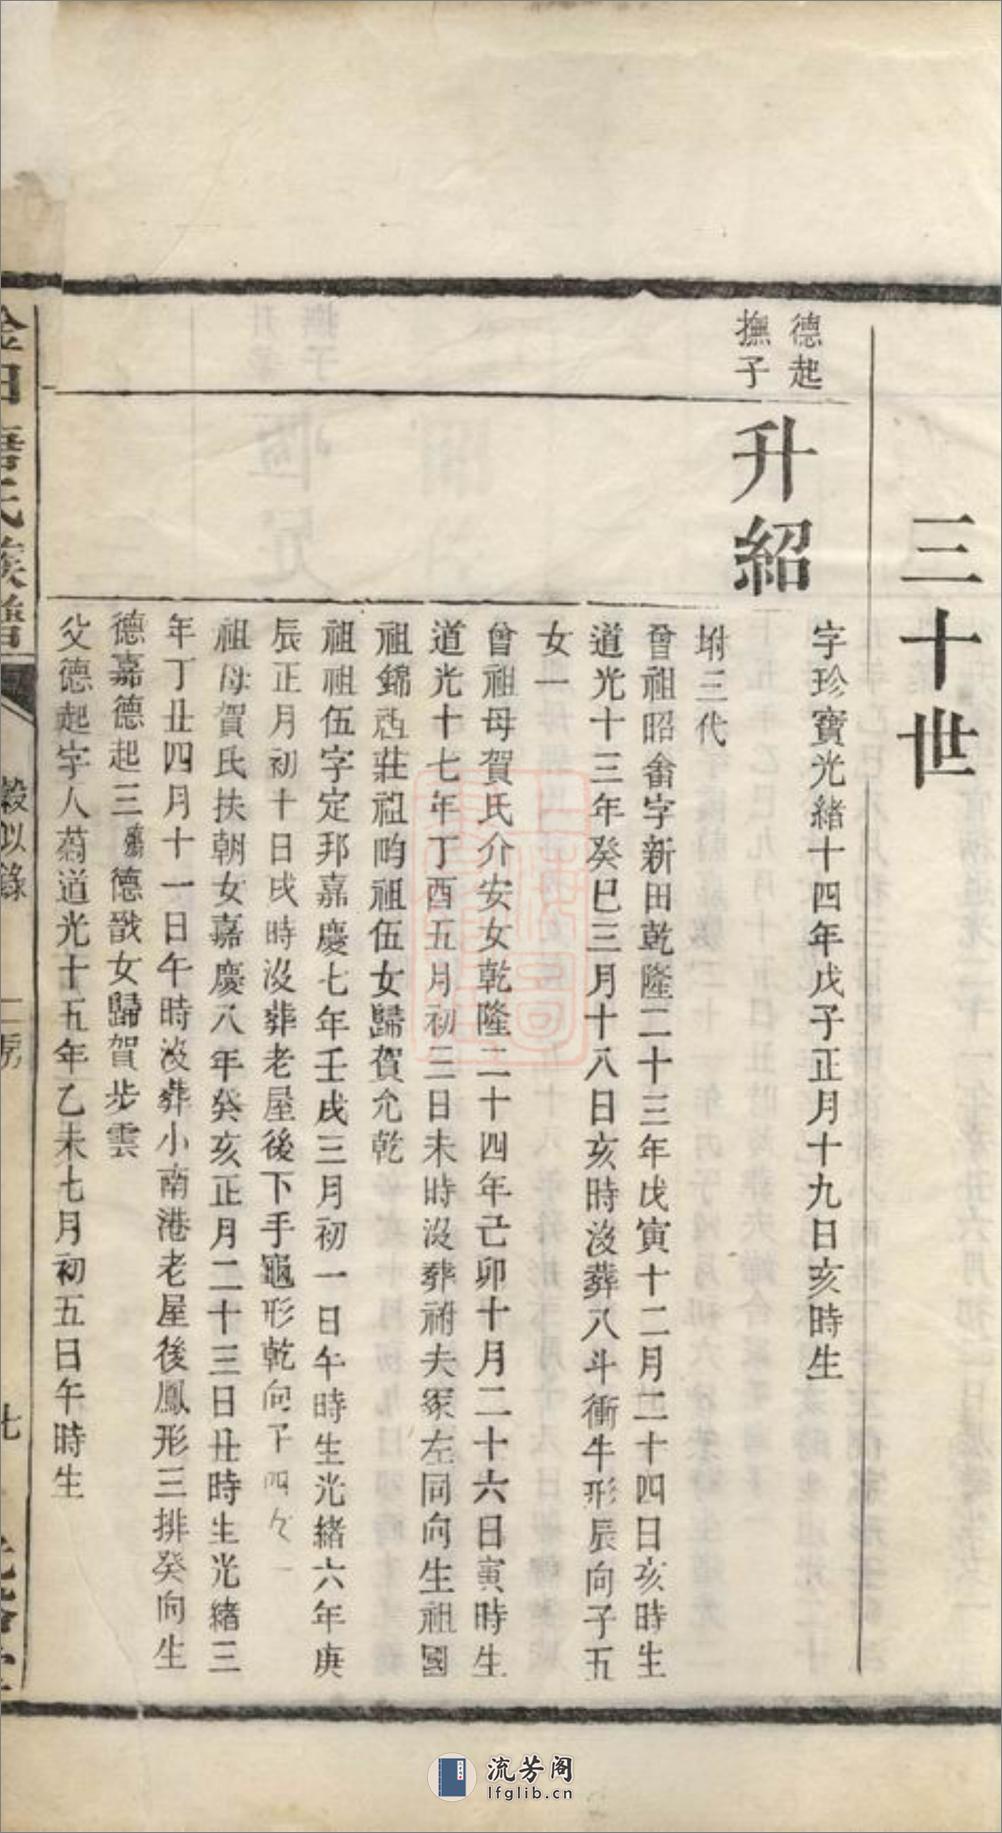 三十世
德起
撫子
升紹
字珍寶光緒十四年戊子正月十九日亥時生
坿三代
曾祖昭畬字新田乾隆二十三年戊寅十二月二十四日亥時生
道光十三年癸巳三月十八日亥時沒葬八斗衝牛形辰向子五
女一
曾祖母賀氏介安女乾隆二十四年己卯十月二十六日寅時生
道光十七年丁酉五月初三日未時沒葬祔夫冢左同向生祖國
祖錦祖莊祖畇祖伍女歸賀允乾
祖祖伍字定邦嘉慶七年壬戌三月初一日午時生光緒六年庚
辰正月初十日戌時沒葬老屋後下手龜形乾向子四女一
祖母賀氏扶朝女嘉慶八年癸亥正月二十三日丑時生光緒三
年丁丑四月十一日午時沒葬小南港老屋後鳳形三排癸向生
德嘉德起三殤德戩女歸賀步雲
父德起字人蒭道光十五年乙未七月初五日午時生
族譜
穀似錄
二房
七
流芳阁
lfglib.cn